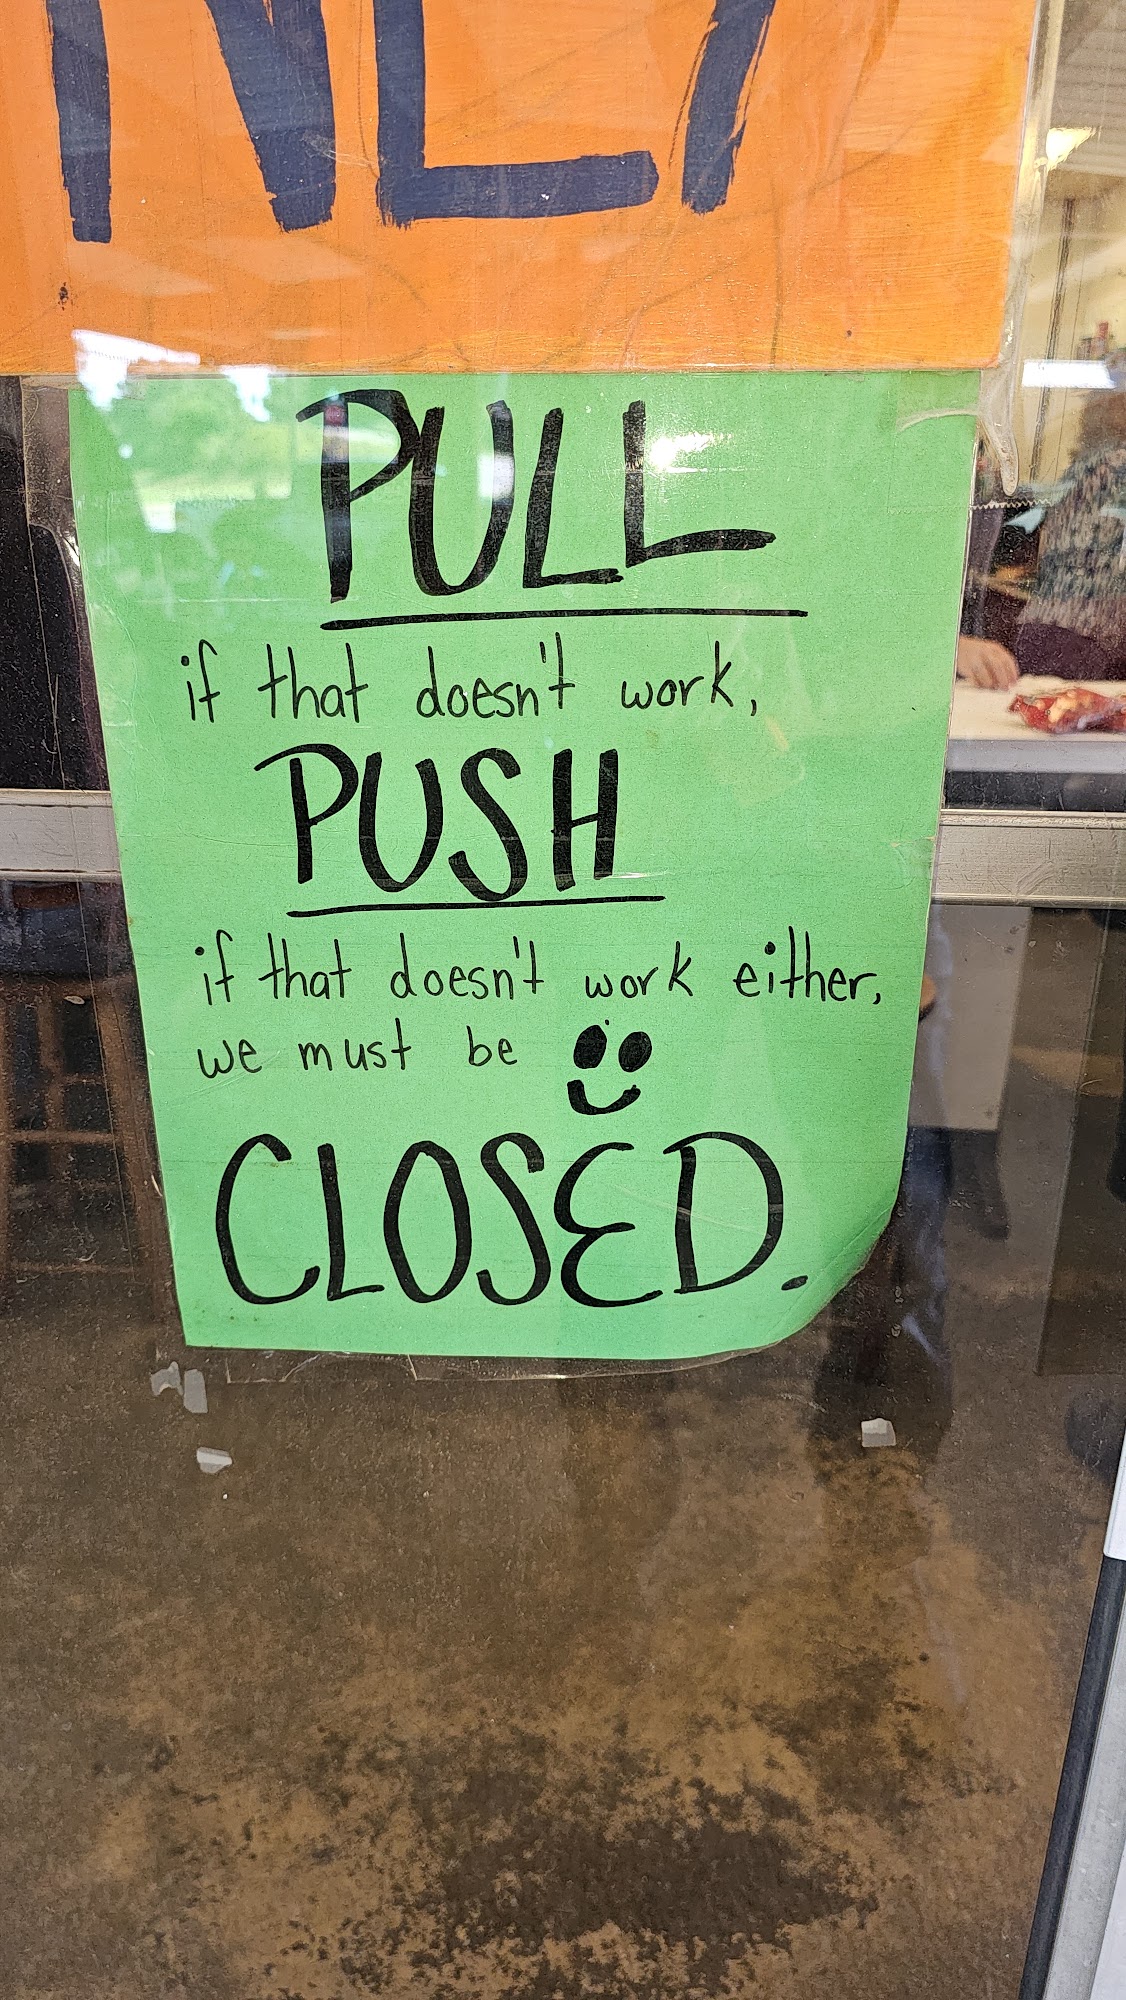 NLY
PULL
if that doesn't work,
PUSH
if that doesn't work either,
we must be
CLOSED.